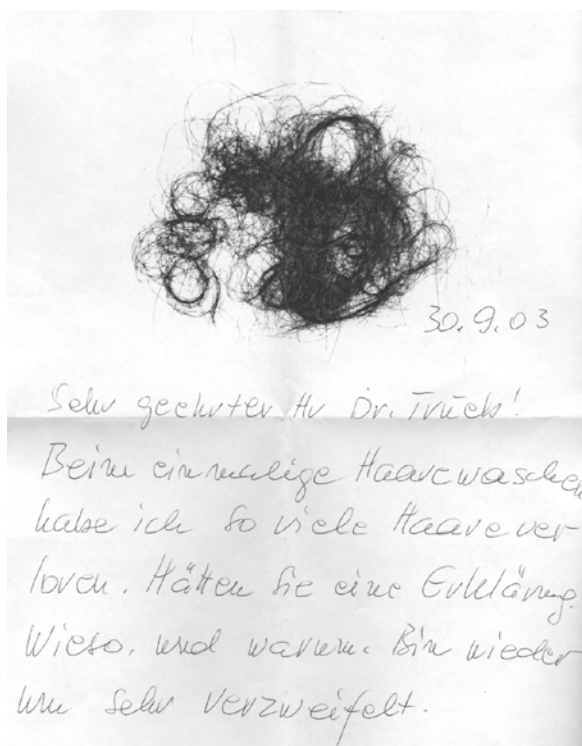 30.9.03
Sehr geehrter Hr Dr. Trüeb!
Beim einmalige Haarewaschen
habe ich so viele Haare ver
loren. Hätten Sie eine Erklärung.
Wieso. und warum. Bin wieder
um sehr verzweifelt.